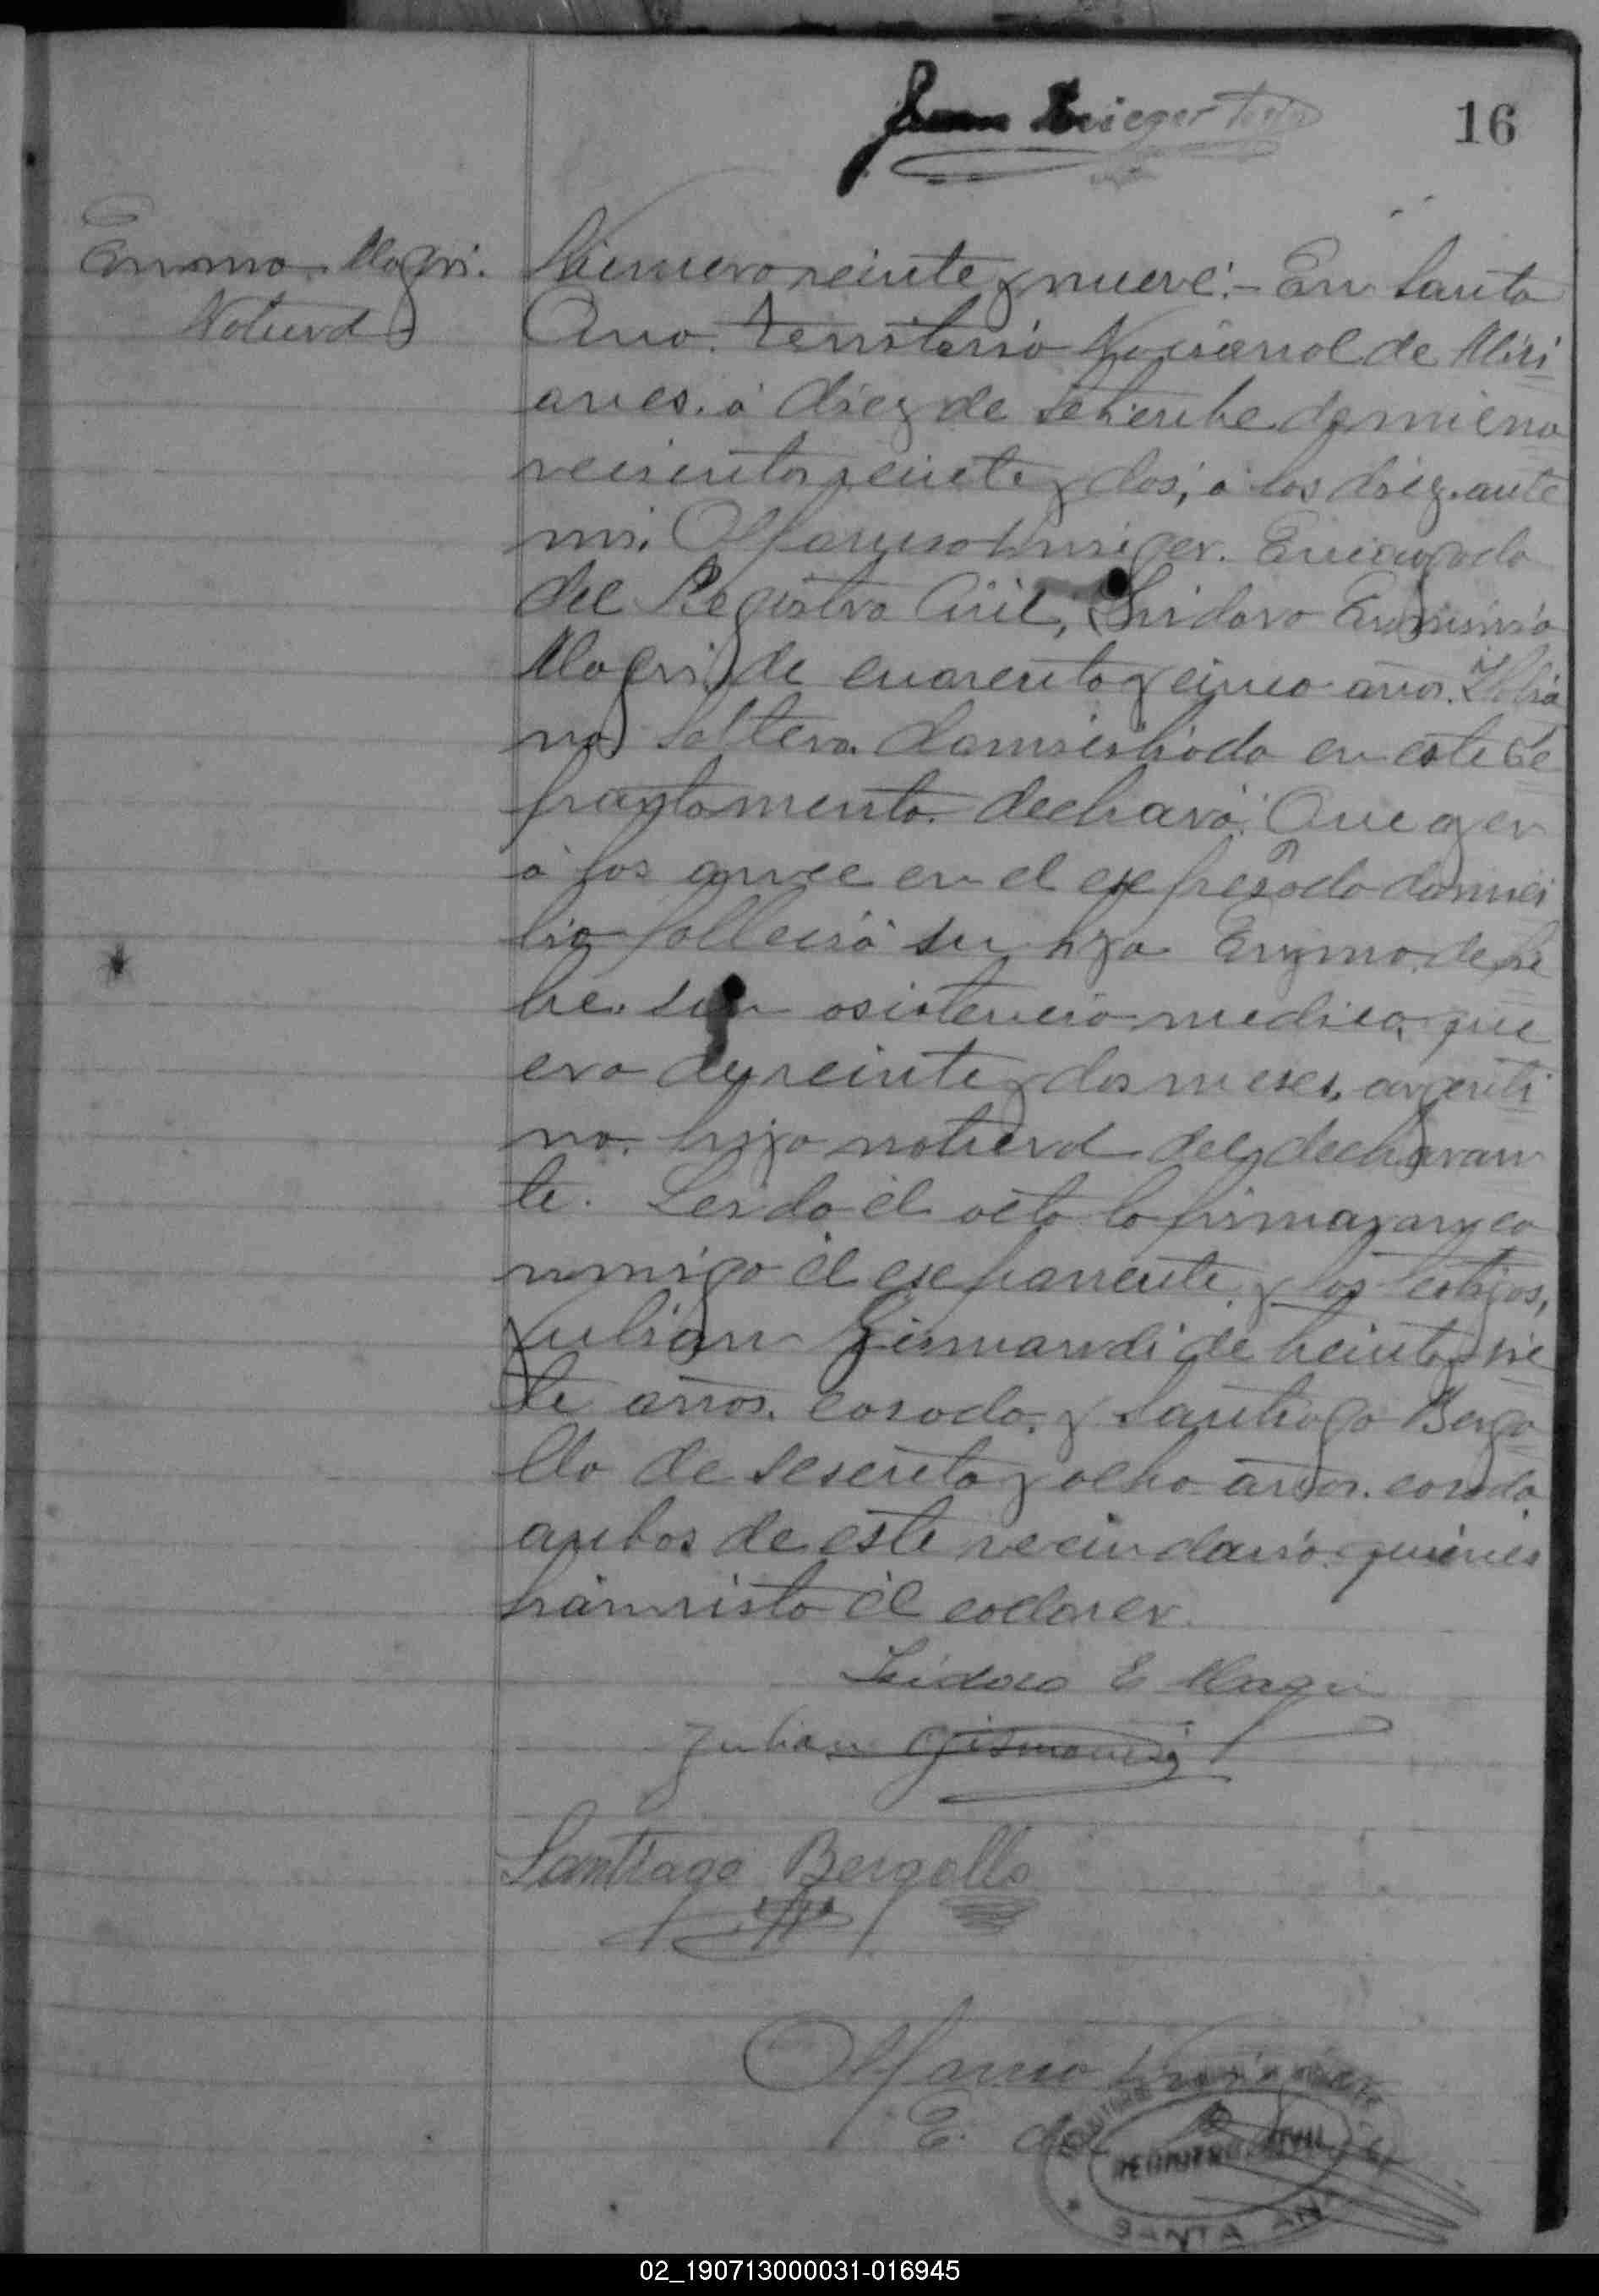 Juan Krieger
16
Emma Magri.
Natural
Número veinte y nueve.- En Santa
Ana. Territorio Nacional de Misi
ones. á diez de Setiembre de mil no
vecientos veinte y dos, á las diez. ante
mi. Encargado
del Registro Civil, Isidoro
Magri, de cuarenta y cinco años. Italia
no. Soltero. domiciliado en este de
partamento. declaró: Que ayer
á las once en el expresado domici
lio falleció su hija Emma. de fie
bre. sin asistencia medica, que
era de veinte y dos meses, argenti
na. hija natural del declaran
te. Leida el acta la firmaron co
nmigo el exponente y los testigos,
Julian Gismandi de treinta y sie
te años. casado. y Santiago Berga
llo de sesenta y ocho años. casado
ambos de este vecindario. quienes
han visto el cadaver.
Isidoro E Magri
Julian Gismondi
Santiago Bergallo
E. del
REGISTRO CIVIL
SANTA ANA
02_190713000031-016945